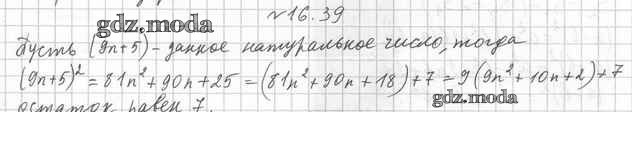 №16.39
gdz.moda
Пусть (9n+5) - данное натуральное число, тогда
(9n+5)² = 81n² + 90n + 25 = (81n² + 90n + 18) + 7 = 9(9n² + 10n + 2) + 7
gdz.moda
остаток равен 7.